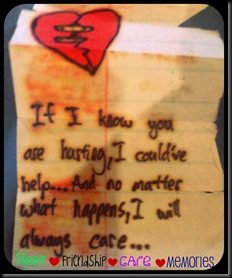 If I know you
are hurting, I could've
help... And no matter
what happens, I will
always care...
Hope ❤ Friendship ❤ CARE ❤ MEMORIES